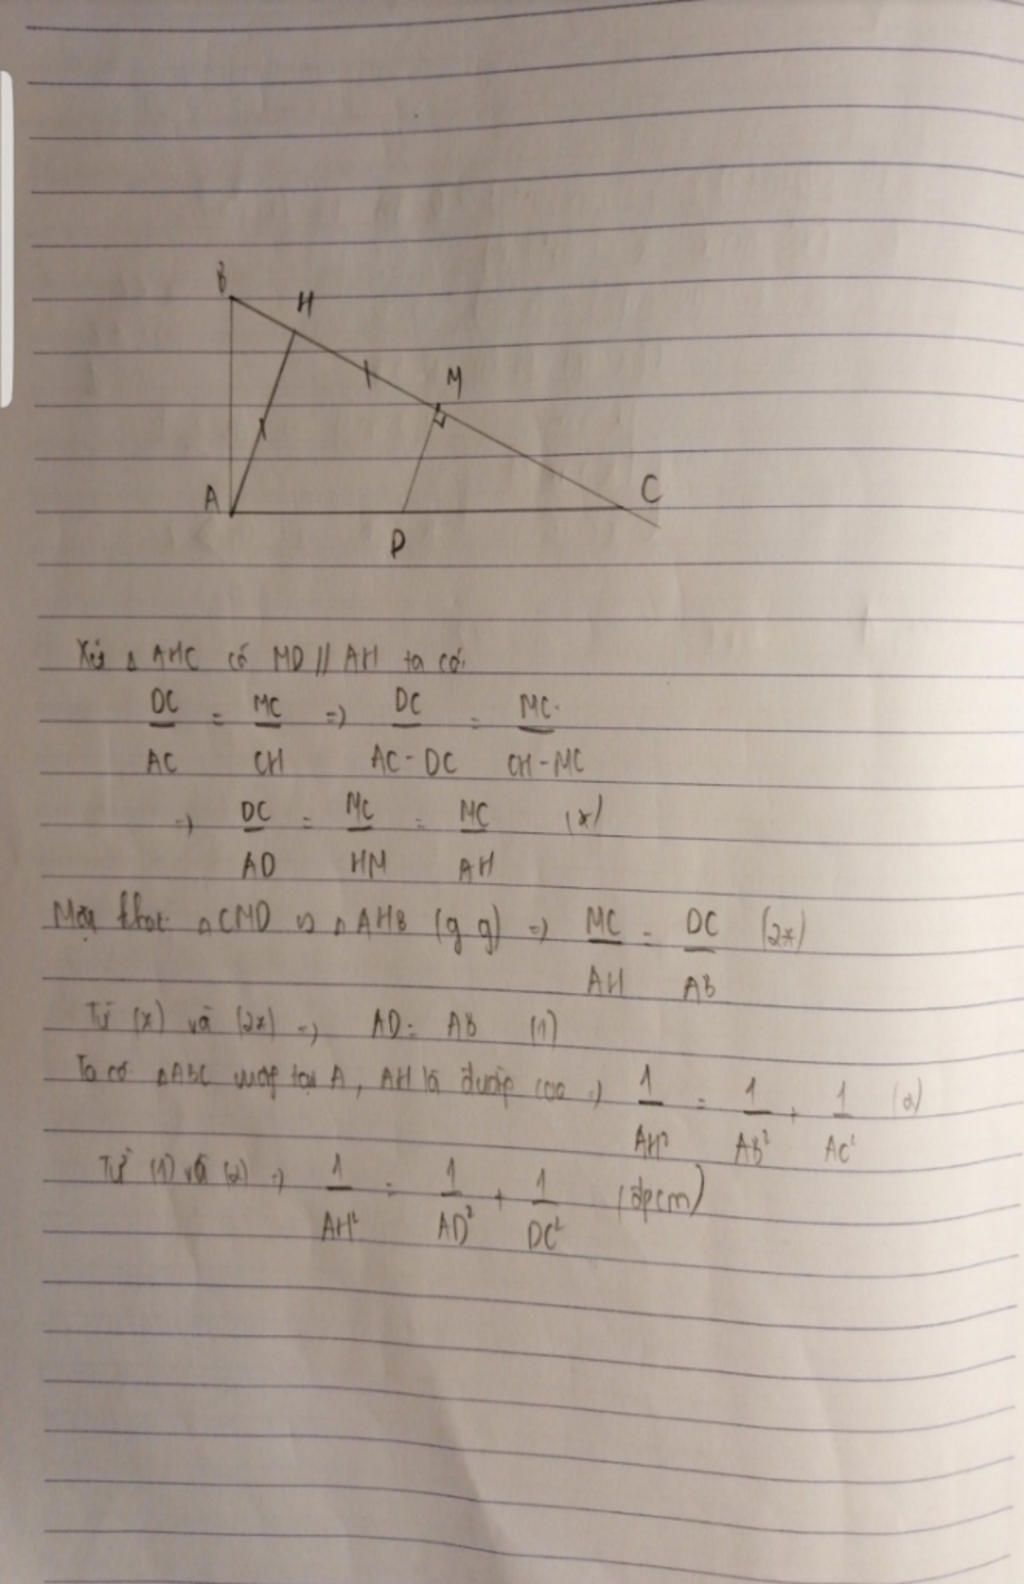 B
H
M
A
C
D
Xét △ AHC có MD // AH ta có:
DC/AC = MC/CH => DC/AC - DC = MC/CH - MC
=> DC/AD = MC/HM = MC/AH (*)
Mặt khác △CMD ∽ △AHB (g g) => MC/AH = DC/AB (2*)
Từ (*) và (2*) => AD = AB (1)
Ta có △ABC vuông tại A, AH là đường cao => 1/AH² = 1/AB² + 1/AC² (2)
Từ (1) và (2) => 1/AH² = 1/AD² + 1/DC² (đpcm)